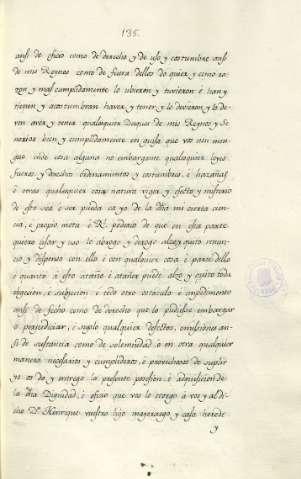 135.
ansi de oficio como de derecho y de uso, y costumbre ansi
de mis Reynos como de fuera dellos do quier, y como so-
zon y mas cumplidamente lo ubieron y tuvieron è han y
tienen y acostumbran haver y tener y le devieron y le de-
ven aver y tener qualesquier Duques de mis Reynos y Se-
ñorios bien y cumplidamente en guisa que vos non men-
gue ende cosa alguna no embargante qualesquier leyes
fueros y derechos ordenamientos y costumbres, è hazañas
è otras qualesquier cosas natura vigor y efecto y misterio
de otro sea è ser pueda ca yo de la dha mi cierta cien-
cia, è propio motu è Rl. poderio de que en esta parte
quiero usar y uso le abrogo y derogo alzo y quito renun-
cio y dispenso con ello è con qualquier cosa è parte dello
è quanto à esto atañe è atañer puede alzo y quito toda
obgecion, è subjecion è todo otro ostaculo è impedimento
ansi de fecho como de derecho que lo pudiese embargar
ò perjudiciar, è suplo qualquier defectos, è omisiones an-
si de sustancia como de solemnidad, ò en otra qualquier
manera necesarios y cumplideros, è provechosos de suplir
yo vos do y entrego la presente posesion, è adquisicion de
la dha Dignidad, è oficio que vos le otorgo à vos y al di-
cho Dn. Henrique vuestro hijo mayorazgo y casa herede
y